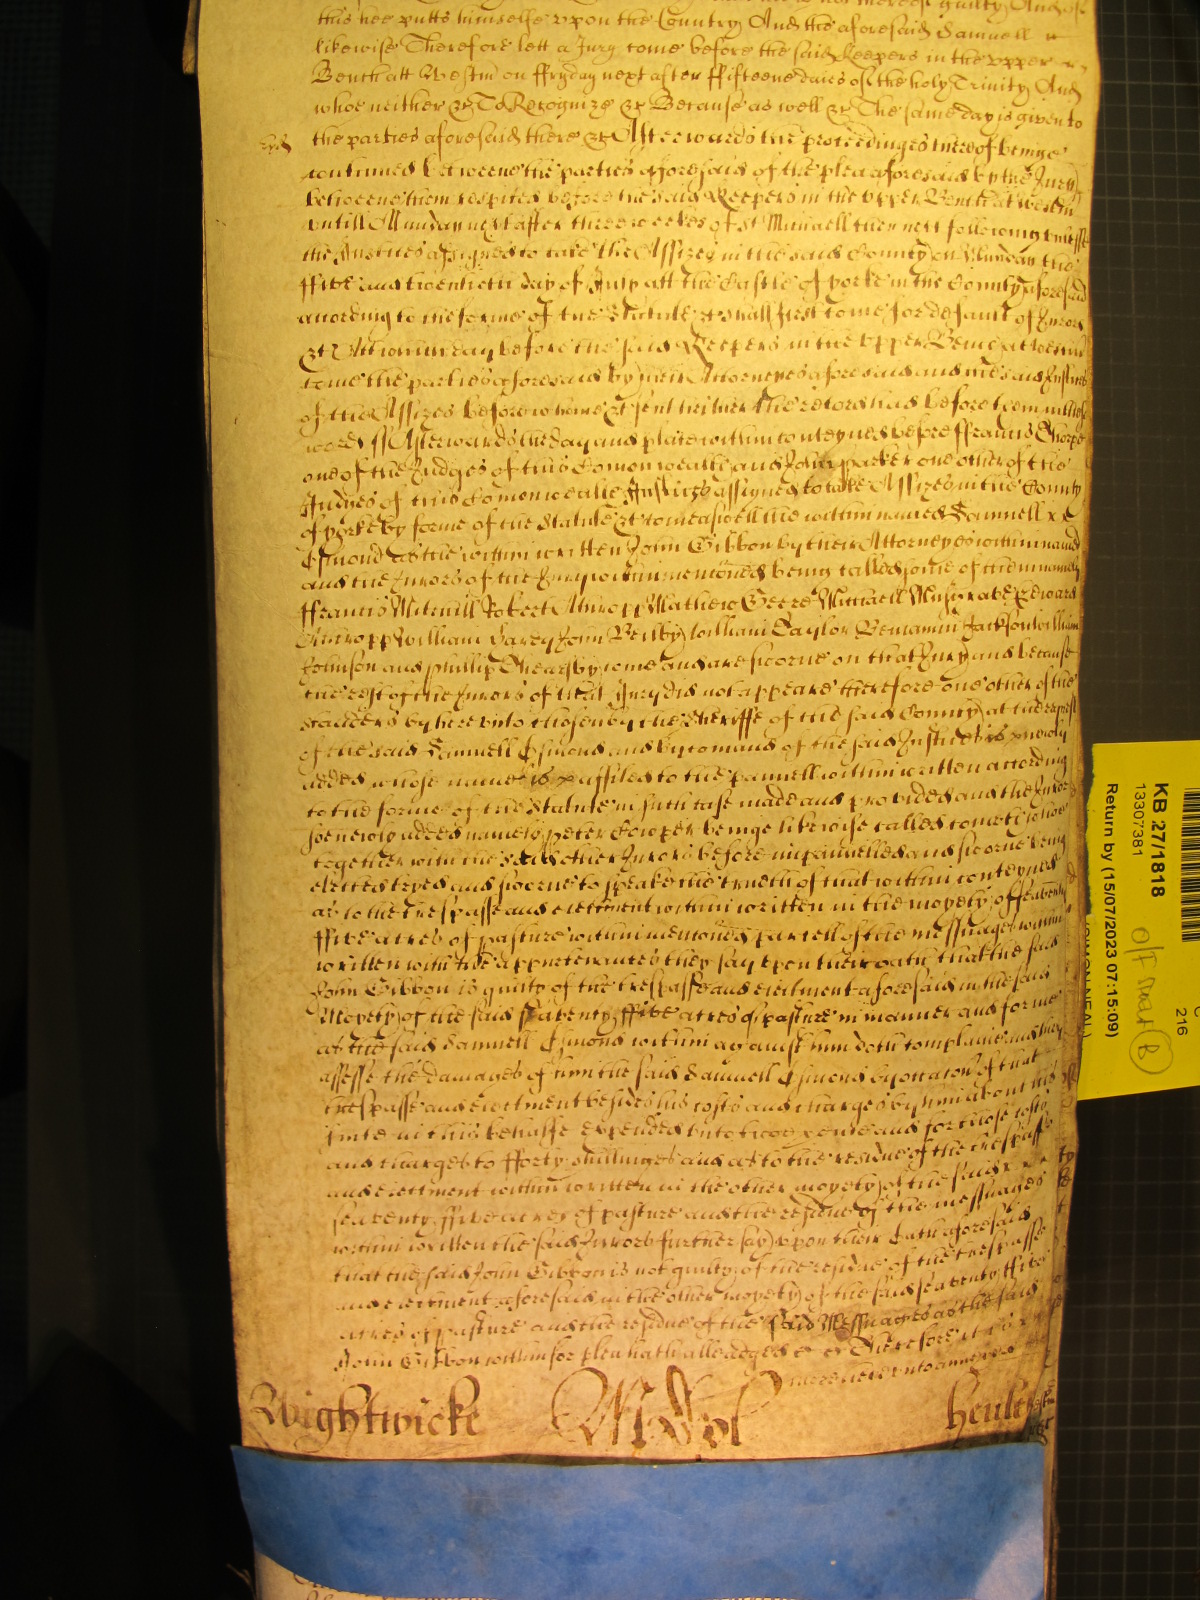 this hee putts himselfe upon the Country And the aforesaid Samuell
likewise Therefore lett a Jury come before the said Keepers in the upper
Bench att Westm on ffryday next after ffifteene daies of the holy Trinity And
whoe neither &c To Recognize &c Because as well &c The same day is given to
the parties aforesaid there &c Afterwards the proceedinges thereof beinge
continued betweene the parties aforesaid of the plea aforesaid by the Jury
betweene them respited before the said Keepers in the upper Bench at Westm
untill Munday next after three weekes of St Michaell then next following unlesse
the Justices assigned to take the Assizes in the said County on Munday the
ffive and twentieth day of July att the Castle of yorke in the County aforesaid
according to the forme of the Statute &c shall first come for default of Jurors
&c Att which day before the said Keepers in the upper Bench at Westm
come the parties aforesaid by their Attorneyes aforesaid and the said Justices
of the Assizes before whome &c sent hither the record had before them in these
words ss Afterwards the day and place within conteyned before ffrancis Thorpe
one of the Judges of this Comonwealth and John parker one other of the
Judges of this Comonwealth Justices assigned to take Assizes in the County
of yorke by forme of the Statute &c come aswell the within named Samuell
Esmond as the within written John Gibbon by their Attorneyes within named
and the Jurors of the Jury within mentioned being called some of them namely
ffrancis Mitchill Robert Athropp Mathew Geere Michaell Musgrave Edward
Athropp William Carey John Beilby William Taylor Beniamin Jackson William
Johnson and phillip Thearsby come and are sworne on that Jury and because
the rest of the Jurors of that Jury did not appeare therefore one other of the
standers by hereunto chosen by the Sheriffe of the said County at the request
of the said Samuell Esmond and by comand of the said Justices is newly
added whose name is affiled to the pannell within written according
to the forme of the Statute in such case made and provided and the Juror
soe newly added namely peter Cowper beinge likewise called cometh whoe
together with the said other Jurors before impannelled and sworne being
elected tryed and sworne to speake the trueth of that within conteyned
as to the trespasse and eiectment within written in the moyety of seaventy
ffive acres of pasture within mentioned parcell of the messuages within
written with the appurtenances they say upon their oath that the said
John Gibbon is guilty of the trespasse and eiectment aforesaid in the said
Moyety of the said seaventy ffive acres of pasture in manner and forme
as the said Samuell Esmond within against him doth complaine and they
assesse the damages of him the said Samuell Esmond by occasion of that
trespasse and eiectment besides his costs and charges by him about his
suite in this behalfe expended unto twoe pence and for those costs
and charges to fforty shillinges and as to the residue of the trespasse
and eiectment within written in the other moyety of the said
seaventy ffive acres of pasture and the residue of the messuages
within written the said Jurors further say upon their Oath aforesaid
that the said John Gibbon is not guilty of the residue of the trespasse
and eiectment aforesaid in the other moyety of the said seaventy ffive
acres of pasture and the residue of the said Messuages as the said
John Gibbon within for plea hath alleadged &c Therefore it is
Wightwicke
KB 27/1818
13307381
Return by (15/07/2023 07:15:09)
216